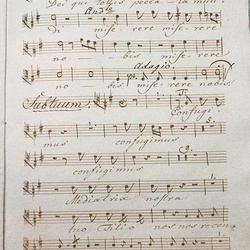 Dei qui tollis pecca ta mun
And.te
di mise rere mise rere
no bis mise rere
Adagio
no bis mise rere nobis.
Subtuum. Confugi
mus confugimus
confugimus
Mediatrix nostra
tuo Filio nos nos recon